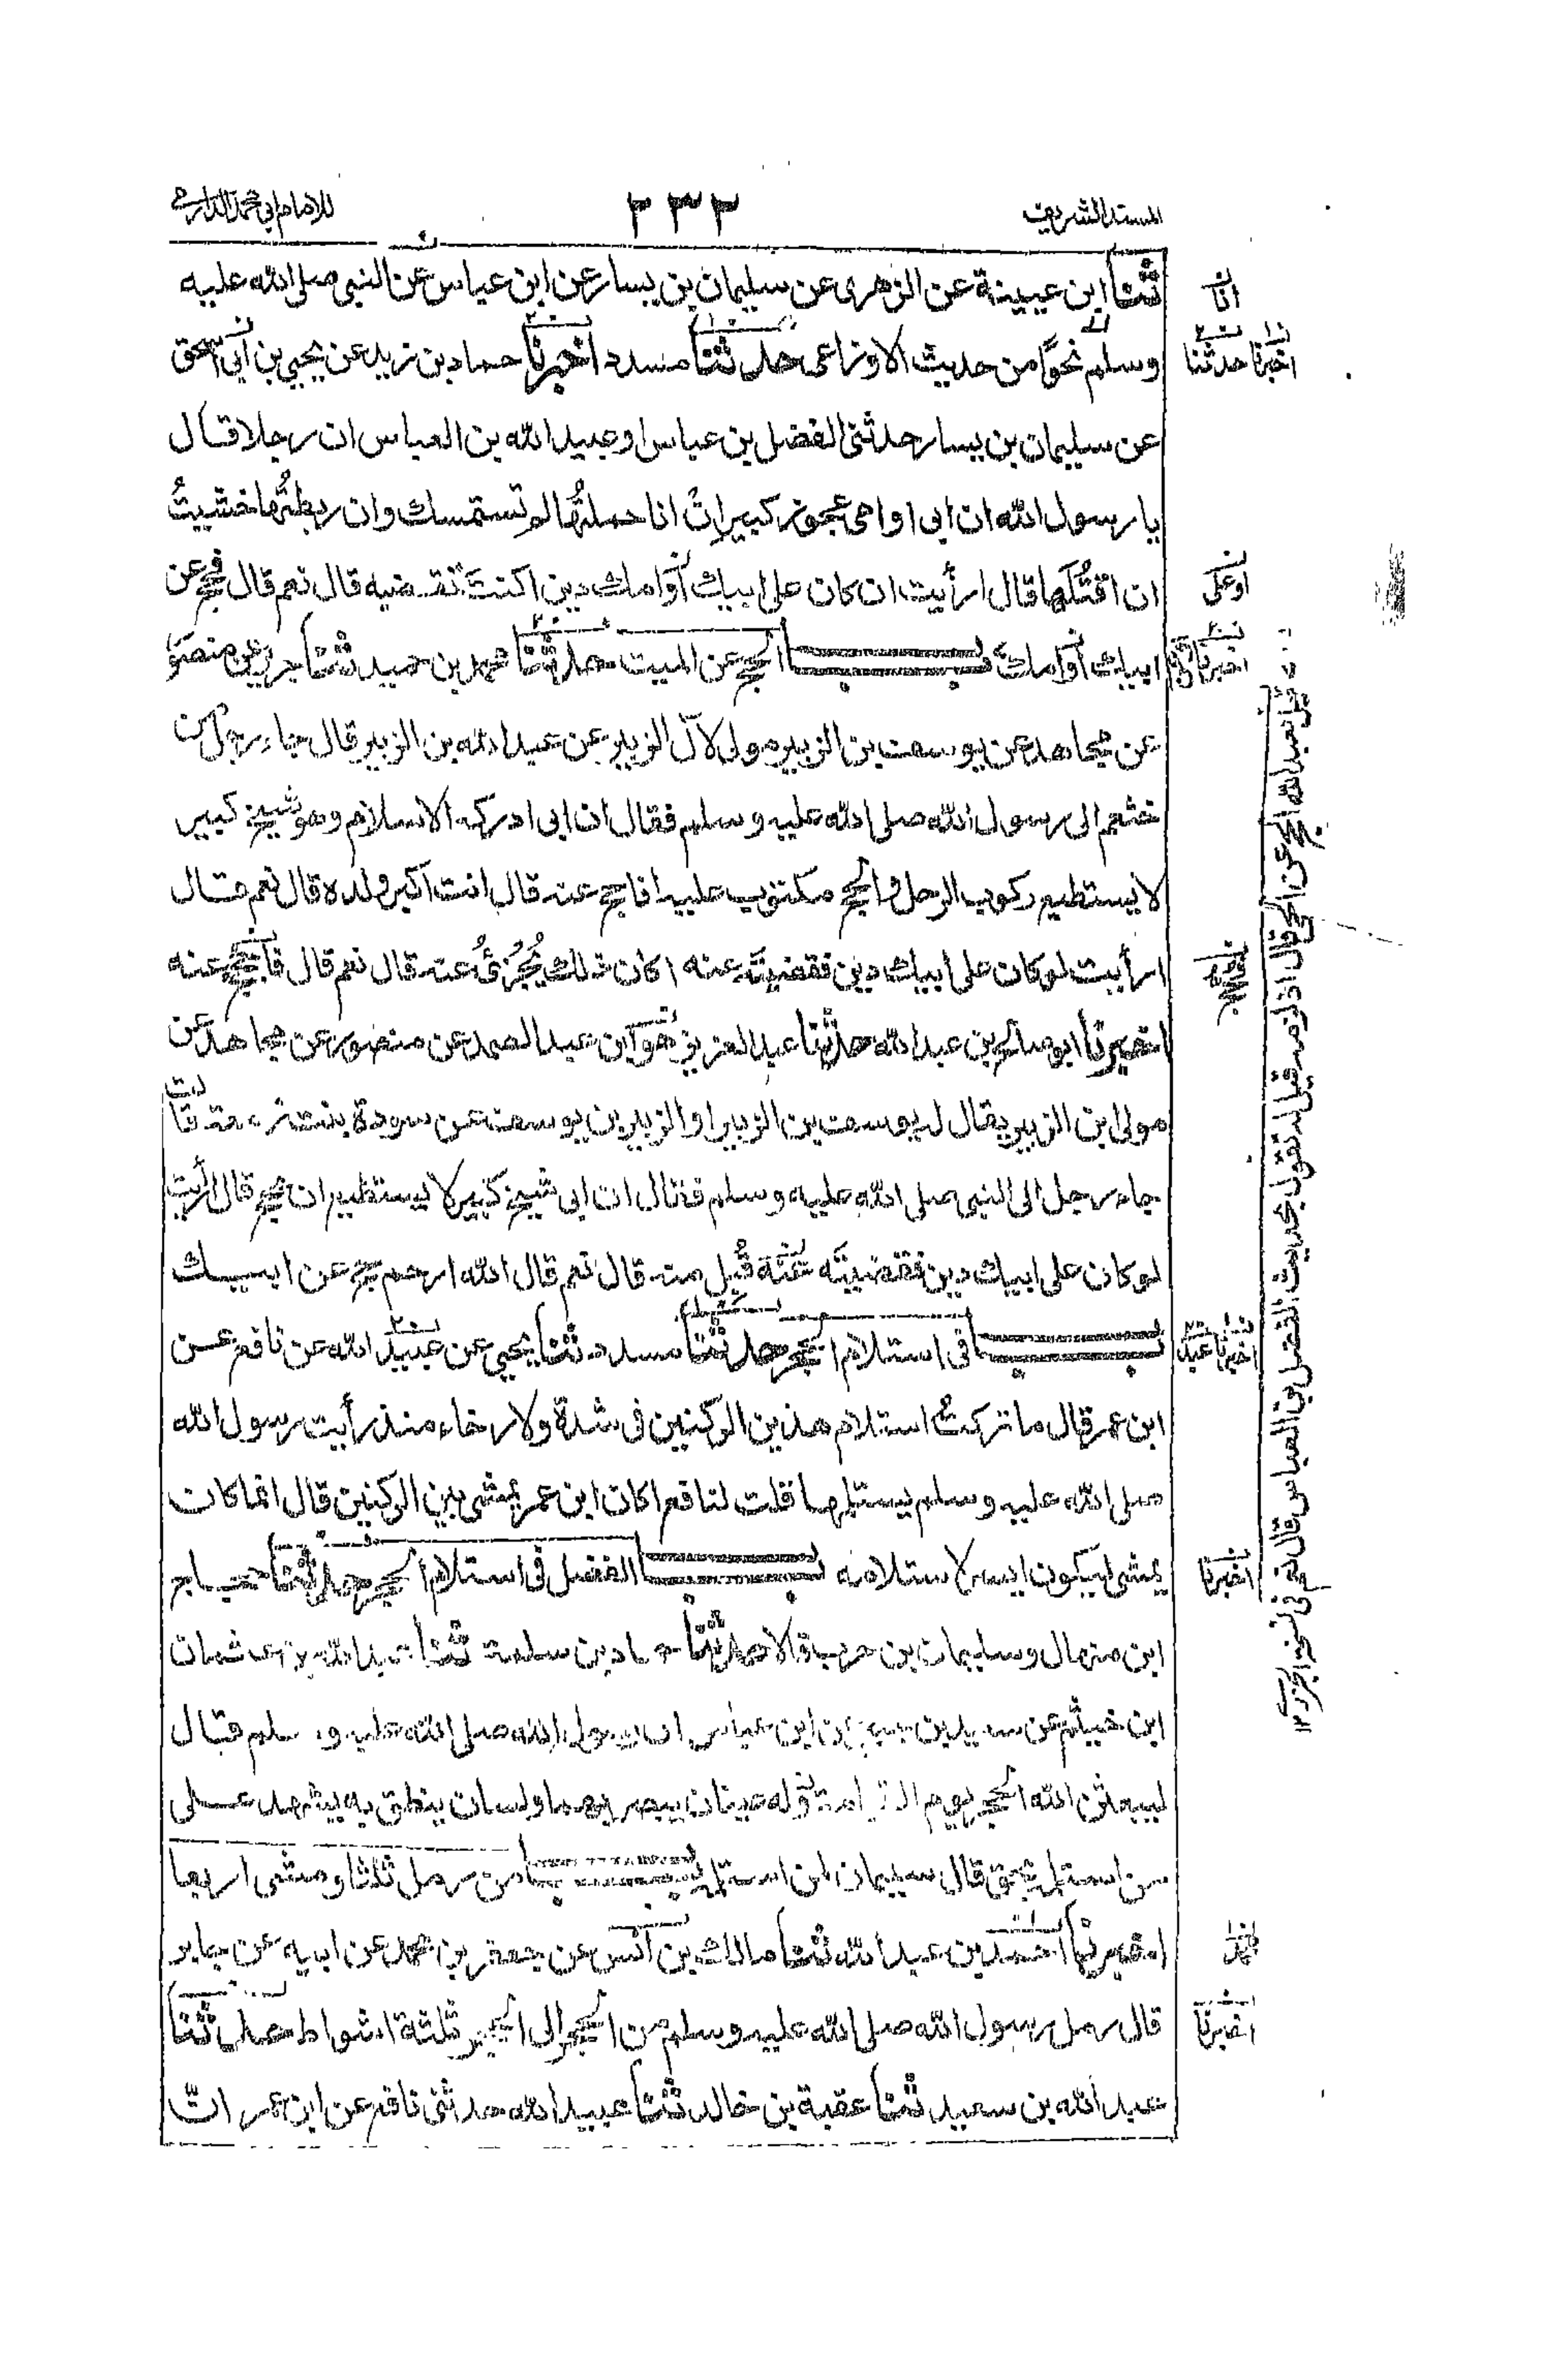 المسند الشريف
٢٣٢
للامام ابي محمد الدارمي
ثنا ابن عيينة عن الزهرى عن سليمان بن يسار عن ابن عباس عن النبى صلى الله عليه
وسلم نحوًا من حديث الاوزاعى حدثنا مسدد اخبرنا حماد بن زيد عن يحيى بن ابى اسحق
عن سليمان بن يسار حدثنى الفضل بن عباس او عبيد الله بن العباس ان رجلا قال
يا رسول الله ان ابى او امى عجوز كبير ان انا حملتُها لم تستمسك وان ربطتُها خشيتُ
ان اقتُلَها قال ارأيت ان كان على ابيك أو امك دين اكنتَ تقضيه قال نعم قال فحج عن
ابيك أو امك باب الحج عن الميت حدثنا محمد بن حميد ثنا جرير عن منصور
عن مجاهد عن يوسف بن الزبير مولى لآل الزبير عن عبد الله بن الزبير قال جاء رجل من
خثعم الى رسول الله صلى الله عليه وسلم فقال ان ابى ادركه الاسلام وهو شيخ كبير
لا يستطيع ركوب الرحل والحج مكتوب عليه افاحج عنه قال انت اكبر ولده قال نعم قال
ارأيت لو كان على ابيك دين فقضيتَه عنه اكان ذلك يُجزئُ عنه قال نعم قال فاحجج عنه
اخبرنا ابو صالح بن عبد الله حدثنا عبد العزيز هو ابن عبد الصمد عن منصور عن مجاهد عن
مولى ابن الزبير يقال له يوسف بن الزبير او الزبير بن يوسف عن سودة بنت زمعة قالت
جاء رجل الى النبى صلى الله عليه وسلم فقال ان ابى شيخ كبير لا يستطيع ان يحج قال ارأيت
لو كان على ابيك دين فقضيتَه عنه قُبِل منه قال نعم قال الله ارحم حج عن ابيك
باب فى استلام الحجر حدثنا مسدد ثنا يحيى عن عبيد الله عن نافع عن
ابن عمر قال ما تركتُ استلام هذين الركنين فى شدة ولا رخاء منذ رأيت رسول الله
صلى الله عليه وسلم يستلمها قلت لنافع اكان ابن عمر يمشى بين الركنين قال انما كان
يمشى ليكون ايسر لاستلامه باب الفضل فى استلام الحجر حدثنا حجاج
ابن منهال وسليمان بن حرب قالا حدثنا حماد بن سلمة ثنا عبد الله بن عثمان
ابن خيثم عن سعيد بن جبير عن ابن عباس ان رسول الله صلى الله عليه وسلم قال
ليبعثن الله الحجر يوم القيامة وله عينان يبصر بهما ولسان ينطق به يشهد على
من استلمه بحق قال سليمان لمن استلمه باب من رمل ثلثا ومشى اربعا
اخبرنا احمد بن عبد الله ثنا مالك بن انس عن جعفر بن محمد عن ابيه عن جابر
قال رمل رسول الله صلى الله عليه وسلم من الحجر الى الحجر ثلثة اشواط حدثنا
عبد الله بن سعيد ثنا عقبة بن خالد ثنا عبيد الله حدثنى نافع عن ابن عمر انّ
انا
اخبرنا حدثنا
او على
اخبرنا
اخبرنا عبد
اخبرنا
اخبرنا
قيل لعبد الله الحج عن الحى قال اذا لزمه قيل له تقول بحديث الفضل بن العباس قال نعم فى نسخة اخرى ١٢